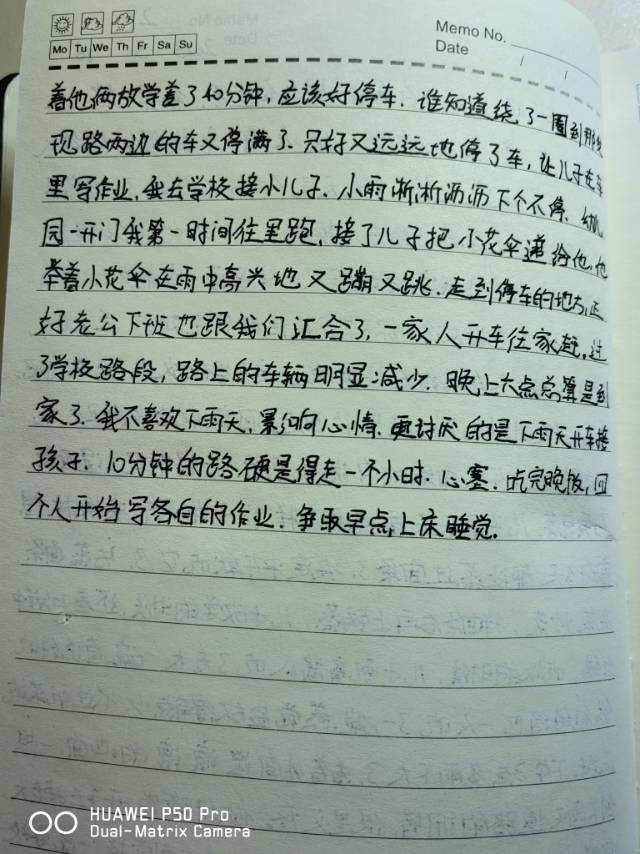 Memo No.
Date / /
Mo Tu We Th Fr Sa Su
着他俩放学差了40分钟，应该好停车．谁知道绕了一圈到那发
现路两边的车又停满了．只好又远远地停了车，让儿子在车
里写作业，我去学校接小儿子．小雨淅淅沥沥下个不停．幼儿
园一开门我第一时间往里跑，接了儿子把小花伞递给他，他
举着小花伞在雨中高兴地又蹦又跳．走到停车的地方，正
好老公下班也跟我们汇合了，一家人开车往家赶。过
了学校路段，路上的车辆明显减少．晚上六点总算是到
家了．我不喜欢下雨天，影响心情．更讨厌的是下雨天开车接
孩子．10分钟的路硬是得走一个小时．心塞．吃完晚饭，四
个人开始写各自的作业．争取早点上床睡觉．
HUAWEI P50 Pro
Dual-Matrix Camera